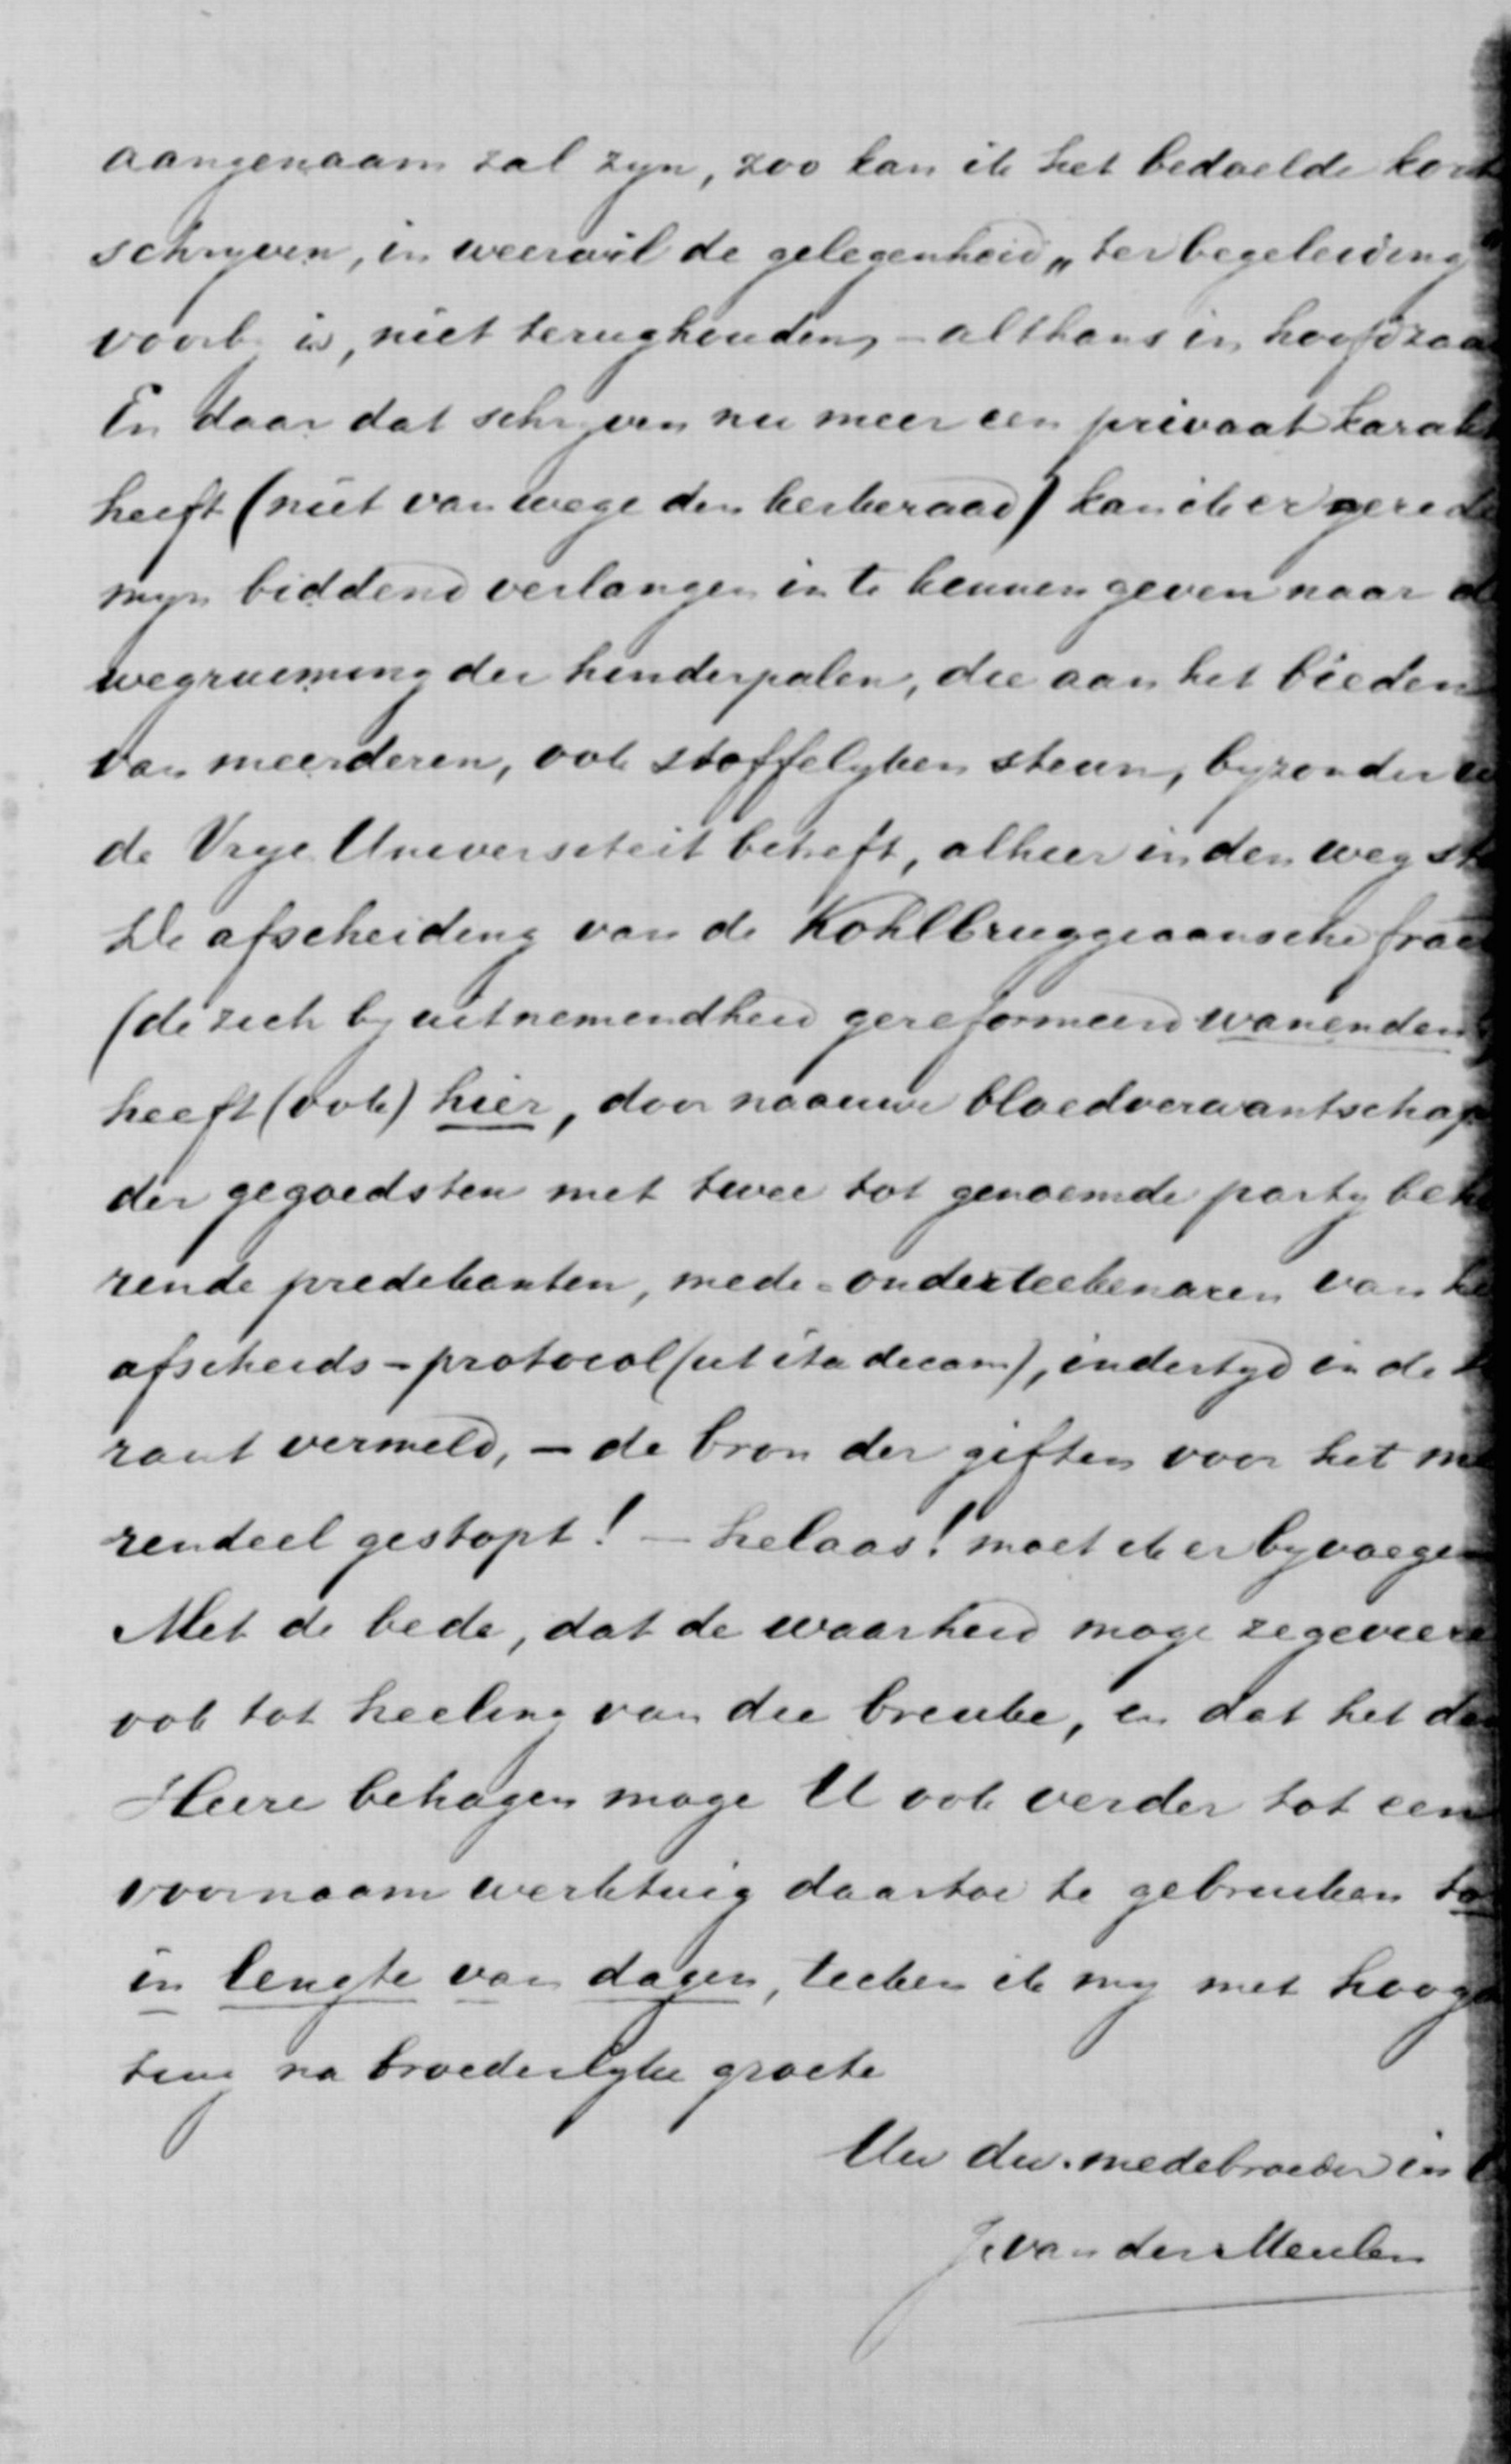 aangenaam zal zyn, zoo kan ik het bedoelde kort
schryven, in weerwil de gelegenheid „ter begeleiding"
voorby is, niet terughouden, – althans in hoofdzaa
En daar dat schryven nu meer een privaat karak
heeft (niet van wege den kerkeraad) kan ik er gerede
myn biddend verlangen in te kennen geven naar d
wegruiming der hinderpalen, die aan het bieden
van meerderen, ook stoffelyken steun, byzonder w
de Vrye Universiteit betreft, alhier in den weg st
De afscheiding van de Kohlbruggiaansche frac
(die zich by uitnemendheid gereformeerd wanenden)
heeft (ook) hier, door naauwe bloedverwantschap
der gegoedsten met twee tot genoemde party beho
rende predikanten, mede-onderteekenaren van he
afscheids-protocol (ut ita dicam), indertyd in de
raut vermeld, – de bron der giften voor het me
rendeel gestopt! – helaas! moet ik er byvoegen
Met de bede, dat de waarheid moge zegeviere
ook tot heeling van die breuke, en dat het den
Heere behagen moge U ook verder tot een
voornaam werktuig daartoe te gebruiken to
in lengte van dagen, teeken ik my met hooga
ting na broederlyke groete
Uw dw. medebroeder in
J. van der Meulen